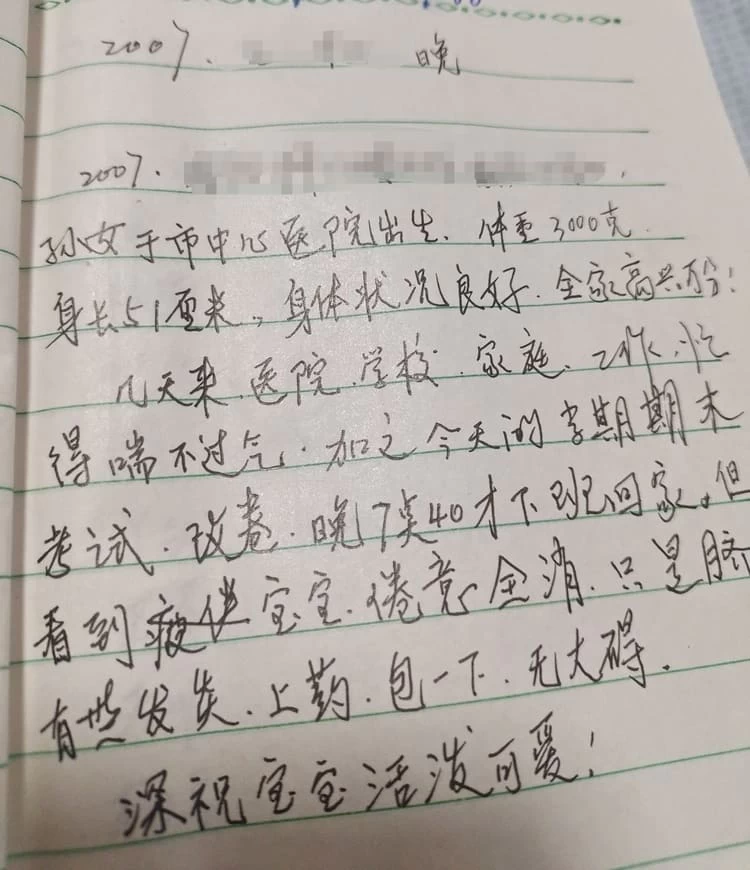 2007. 晚
2007.
孙女于市中心医院出生、体重3000克.
身长51厘米。身体状况良好.全家高兴万分!
几天来.医院.学校.家庭.工作.忙
得喘不过气.加之今天的学期期末
考试.改卷.晚7点40才下班回家。但
看到宝宝.倦意全消.只是脐
有些发炎.上药.包一下.无大碍.
深祝宝宝活泼可爱!